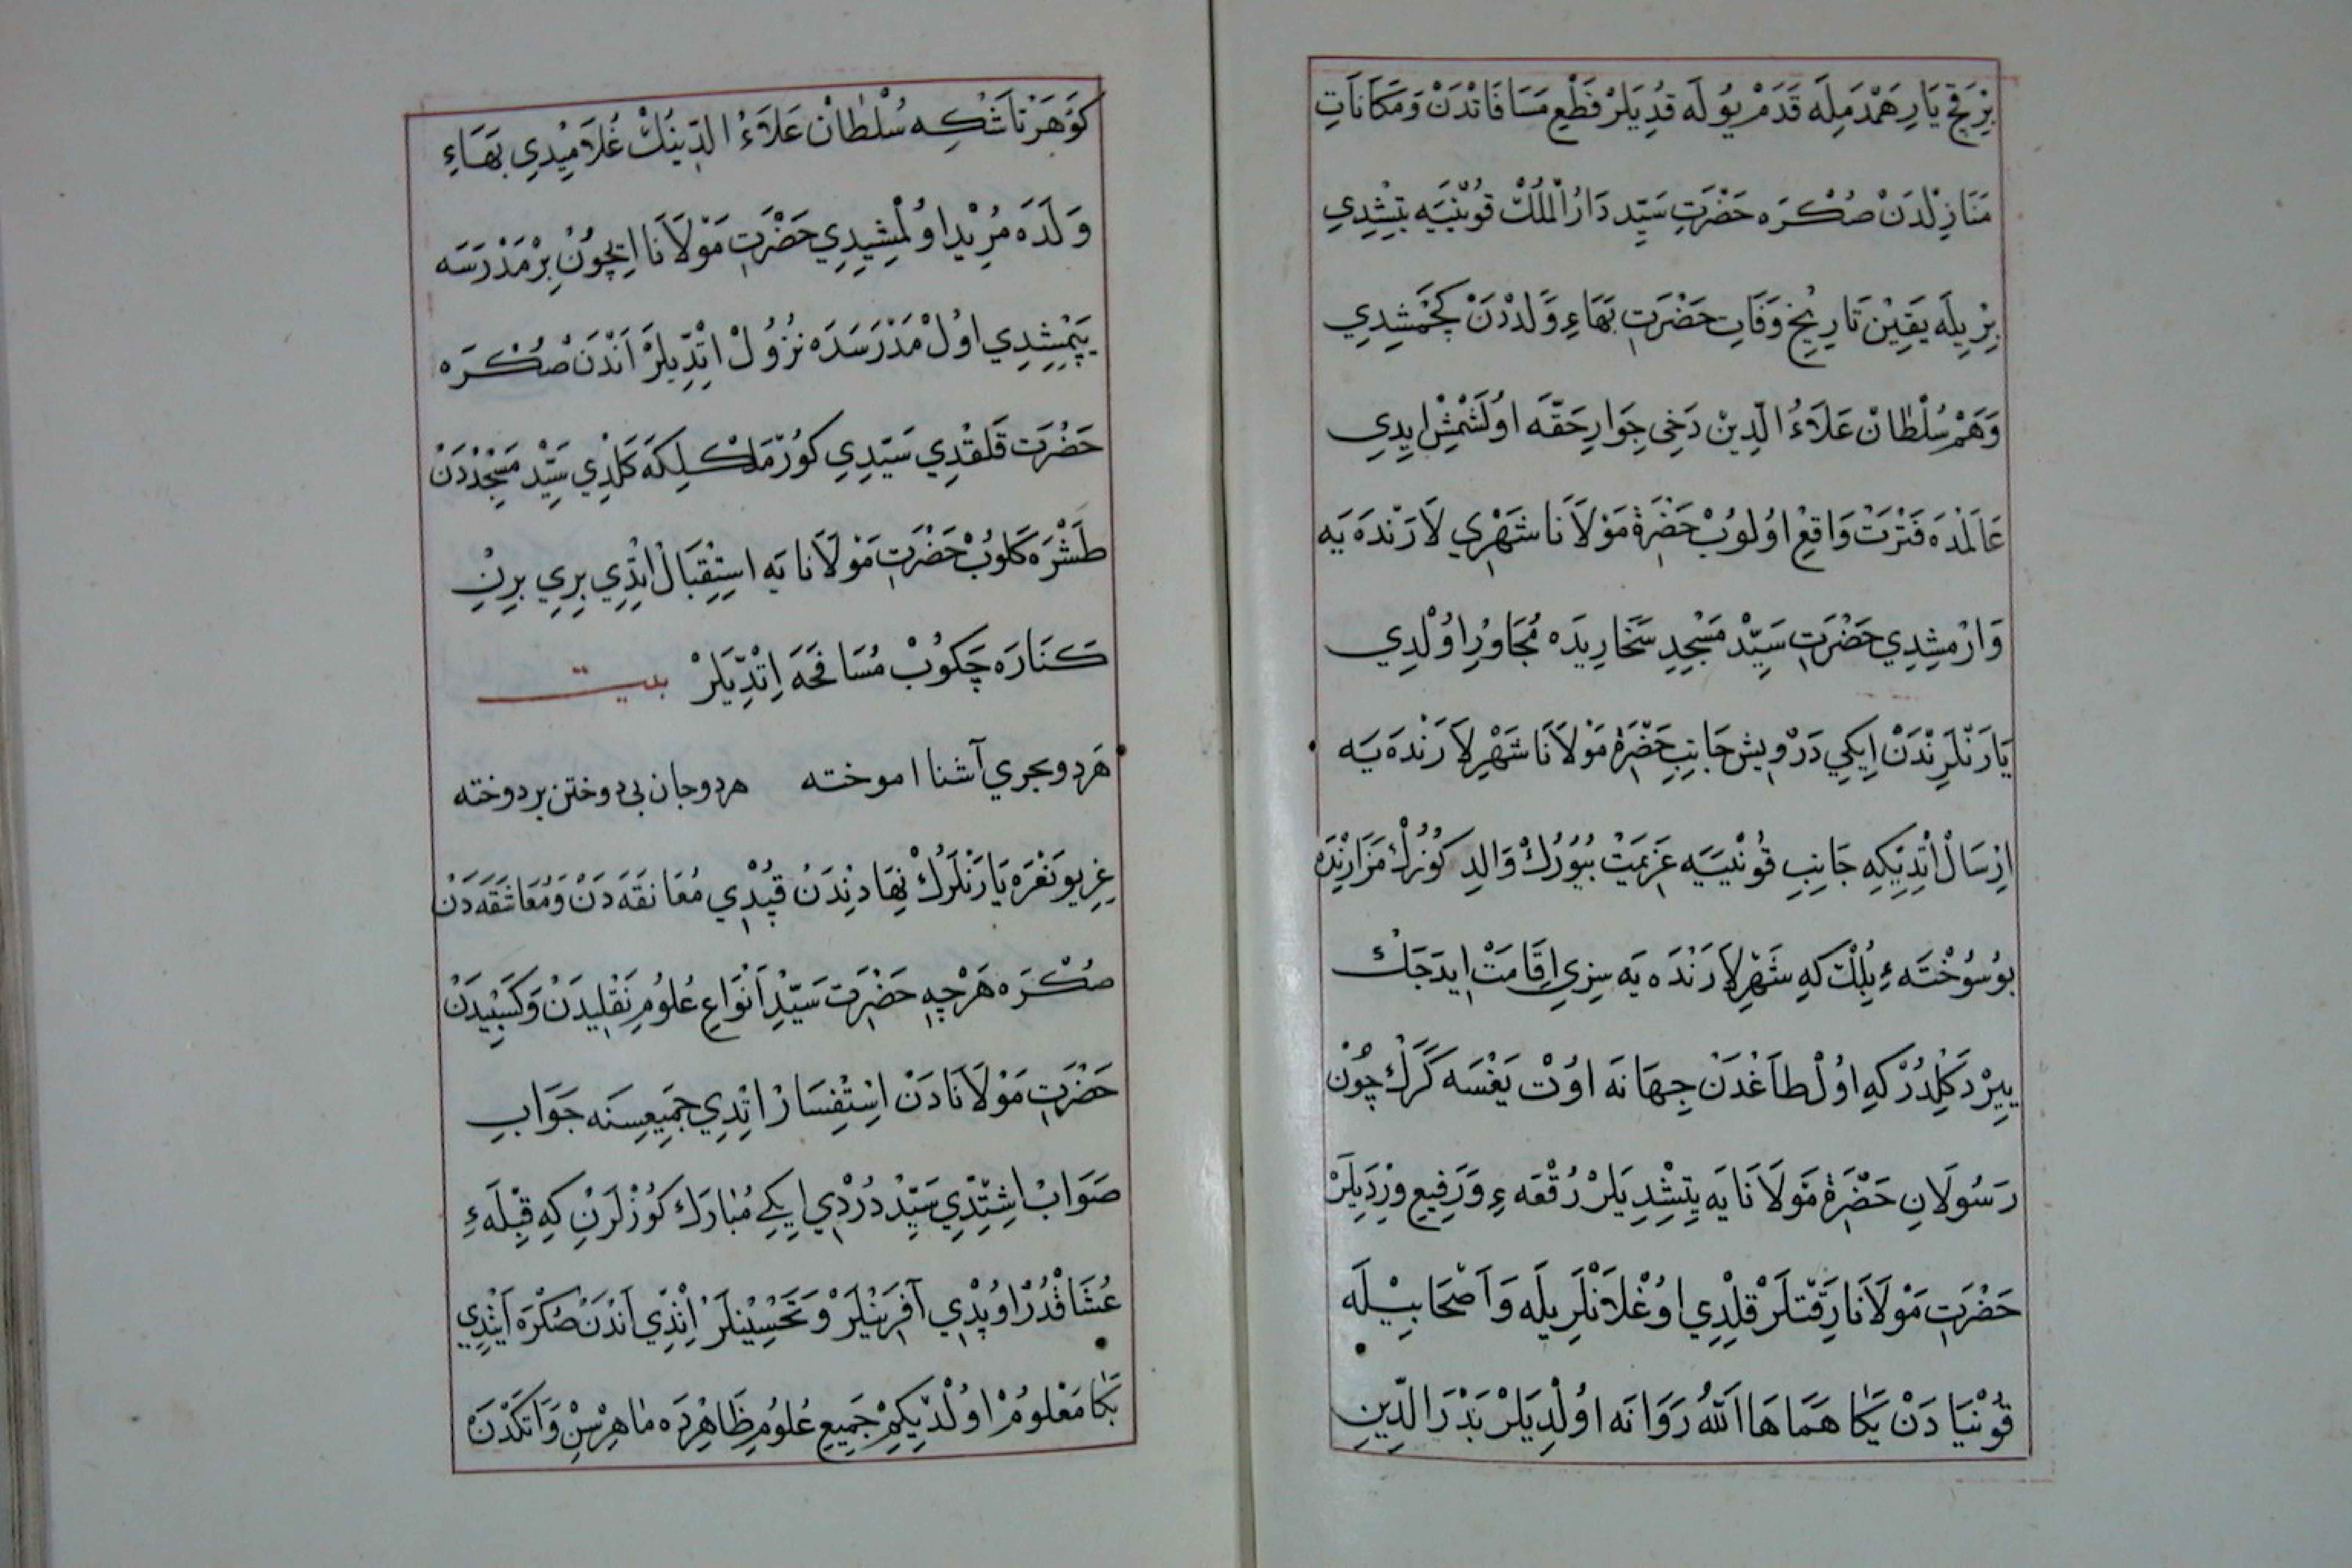 بِرْقَچْ يَارِ هَمْدَمِلَه قَدَمْ يُولَه قُدِيلَرْ قَطْعِ مَسَافَاتْدَنْ وَمَكَانَاتِ
مَنَازِلْدَنْ صُكْرَه حَضْرَتِ سَيِّد دَارُ الْمُلْكْ قُونْيَيَه يَتِشْدِي
بِرْيِلَه يَقِينْ تَارِيخِ وَفَاتِ حَضْرَتِ بَهَاءِ وَلَدْدَنْ كَچْمِشِدِي
وَهَمْ سُلْطَانْ عَلَاءُ الدِّينْ دَخِي جِوَارِ حَقَّه اُولَشْمِشْ ايِدِي
عَالَمْدَه فَتْرَتْ وَاقِعْ اُولُوبْ حَضْرَةِ مَوْلَانَا شَهْرِي لَارَنْدَه يَه
وَارْمِشِدِي حَضْرَتِ سَيِّدْ مَسْجِدِ سَنْجَارِيدَه مُجَاوِرْ اُولْدِي
يَارَنْلَرِنْدَنْ اِيكِي دَرْوِيشْ جَانِبِ حَضْرَةِ مَوْلَانَا شَهْرِ لَارَنْدَه يَه
اِرْسَالْ اتِدِيكِه جَانِبِ قُونْيَيَه عَزِيمَتْ بُيُورُكْ وَالِدِ كُوزُكْ مَزَارِنْدَه
بُوسُوخْتَهءِ بِلِكْ كِه شَهْرِ لَارَنْدَه يَه سِزِي اِقَامَتْ ايدَجَكْ
يِيرْ دَكِلْدُرْ كِه اُولْ طَاغْدَنْ جِهَانَه اُوتْ يَغْسَه كَرَكْ چُونْ
رَسُولَانِ حَضْرَةِ مَوْلَانَايَه يِتِشْدِيلَرْ رُقْعَهءِ وَرَفِيعِ وِرْدِيلَرْ
حَضْرَتِ مَوْلَانَا رِقَّتْلَرْ قِلْدِي اُوغْلَانْلَرِيلَه وَاَصْحَابِيْلَه
قُونْيَادَنْ يَكَا هَمَاهَا اَللهُ رَوَانَه اُولْدِيلَرْ بَدْرَ الدِّينِ
كَوْهَرْتَاشْكِه سُلْطَانْ عَلَاءُ الدِّينُكْ غُلَامِيْدِي بَهَاءِ
وَلَدَه مُرِيدْ اُولْمِشِيدِي حَضْرَتِ مَوْلَانَا اِيچُونْ بِرْ مَدْرَسَه
يَپْمِشِدِي اُولْ مَدْرَسَدَه نُزُولْ اتِدِّيلَرْ اَنْدَنْ صُكْرَه
حَضْرَت قَلْقْدِي سَيِّدِي كُورْمَكْلِكَه كَلْدِي سَيِّدْ مَسْجِدْدَنْ
طَشْرَه كَلُوبْ حَضْرَتِ مَوْلَانَا يَه اسِتِقْبَالْ اتِدِّي بِرِي بِرِنْ
كَنَارَه چَكُوبْ مُسَافَحَه اِتْدِّيلَرْ بيت
هَردو بحري آشنا اموخته هردو جان بى دوختن بردوخته
غِرِيو نَعْرَه يَارَنْلَرُكْ نِهَادِنْدَنْ قُپْدِي مُعَانَقَه دَنْ وَمُعَاشَقَه دَنْ
صُكْرَه هَرْچِه حَضْرَتِ سَيِّدْ اَنْوَاعِ عُلُومِ نَقْلِيدَنْ وَكَسْبِيدَنْ
حَضْرَتِ مَوْلَانَادَنْ اسِتْفِسَارْ اتِدِي جَمِيعِسِنَه جَوَابِ
صَوَابْ اشِتِدِّي سَيِّدْ دُرْدِي ايِكِي مُبَارَكْ كُوزْلَرِنْ كِه قِبْلَهءِ
عُشَّاقْدُرْ اُوپْدِي آفِرِينْلَرْ وَتَحْسِيْنلَرْ اتِدِّي اَنْدَنْ صُكْرَه اَيْتْدِي
بَكَا مَعْلُومْ اُولْدِيكِمْ جَمِيعِ عُلُومِ ظَاهِرْدَه مَاهِرْسِنْ وَاَتَكْدَنْ